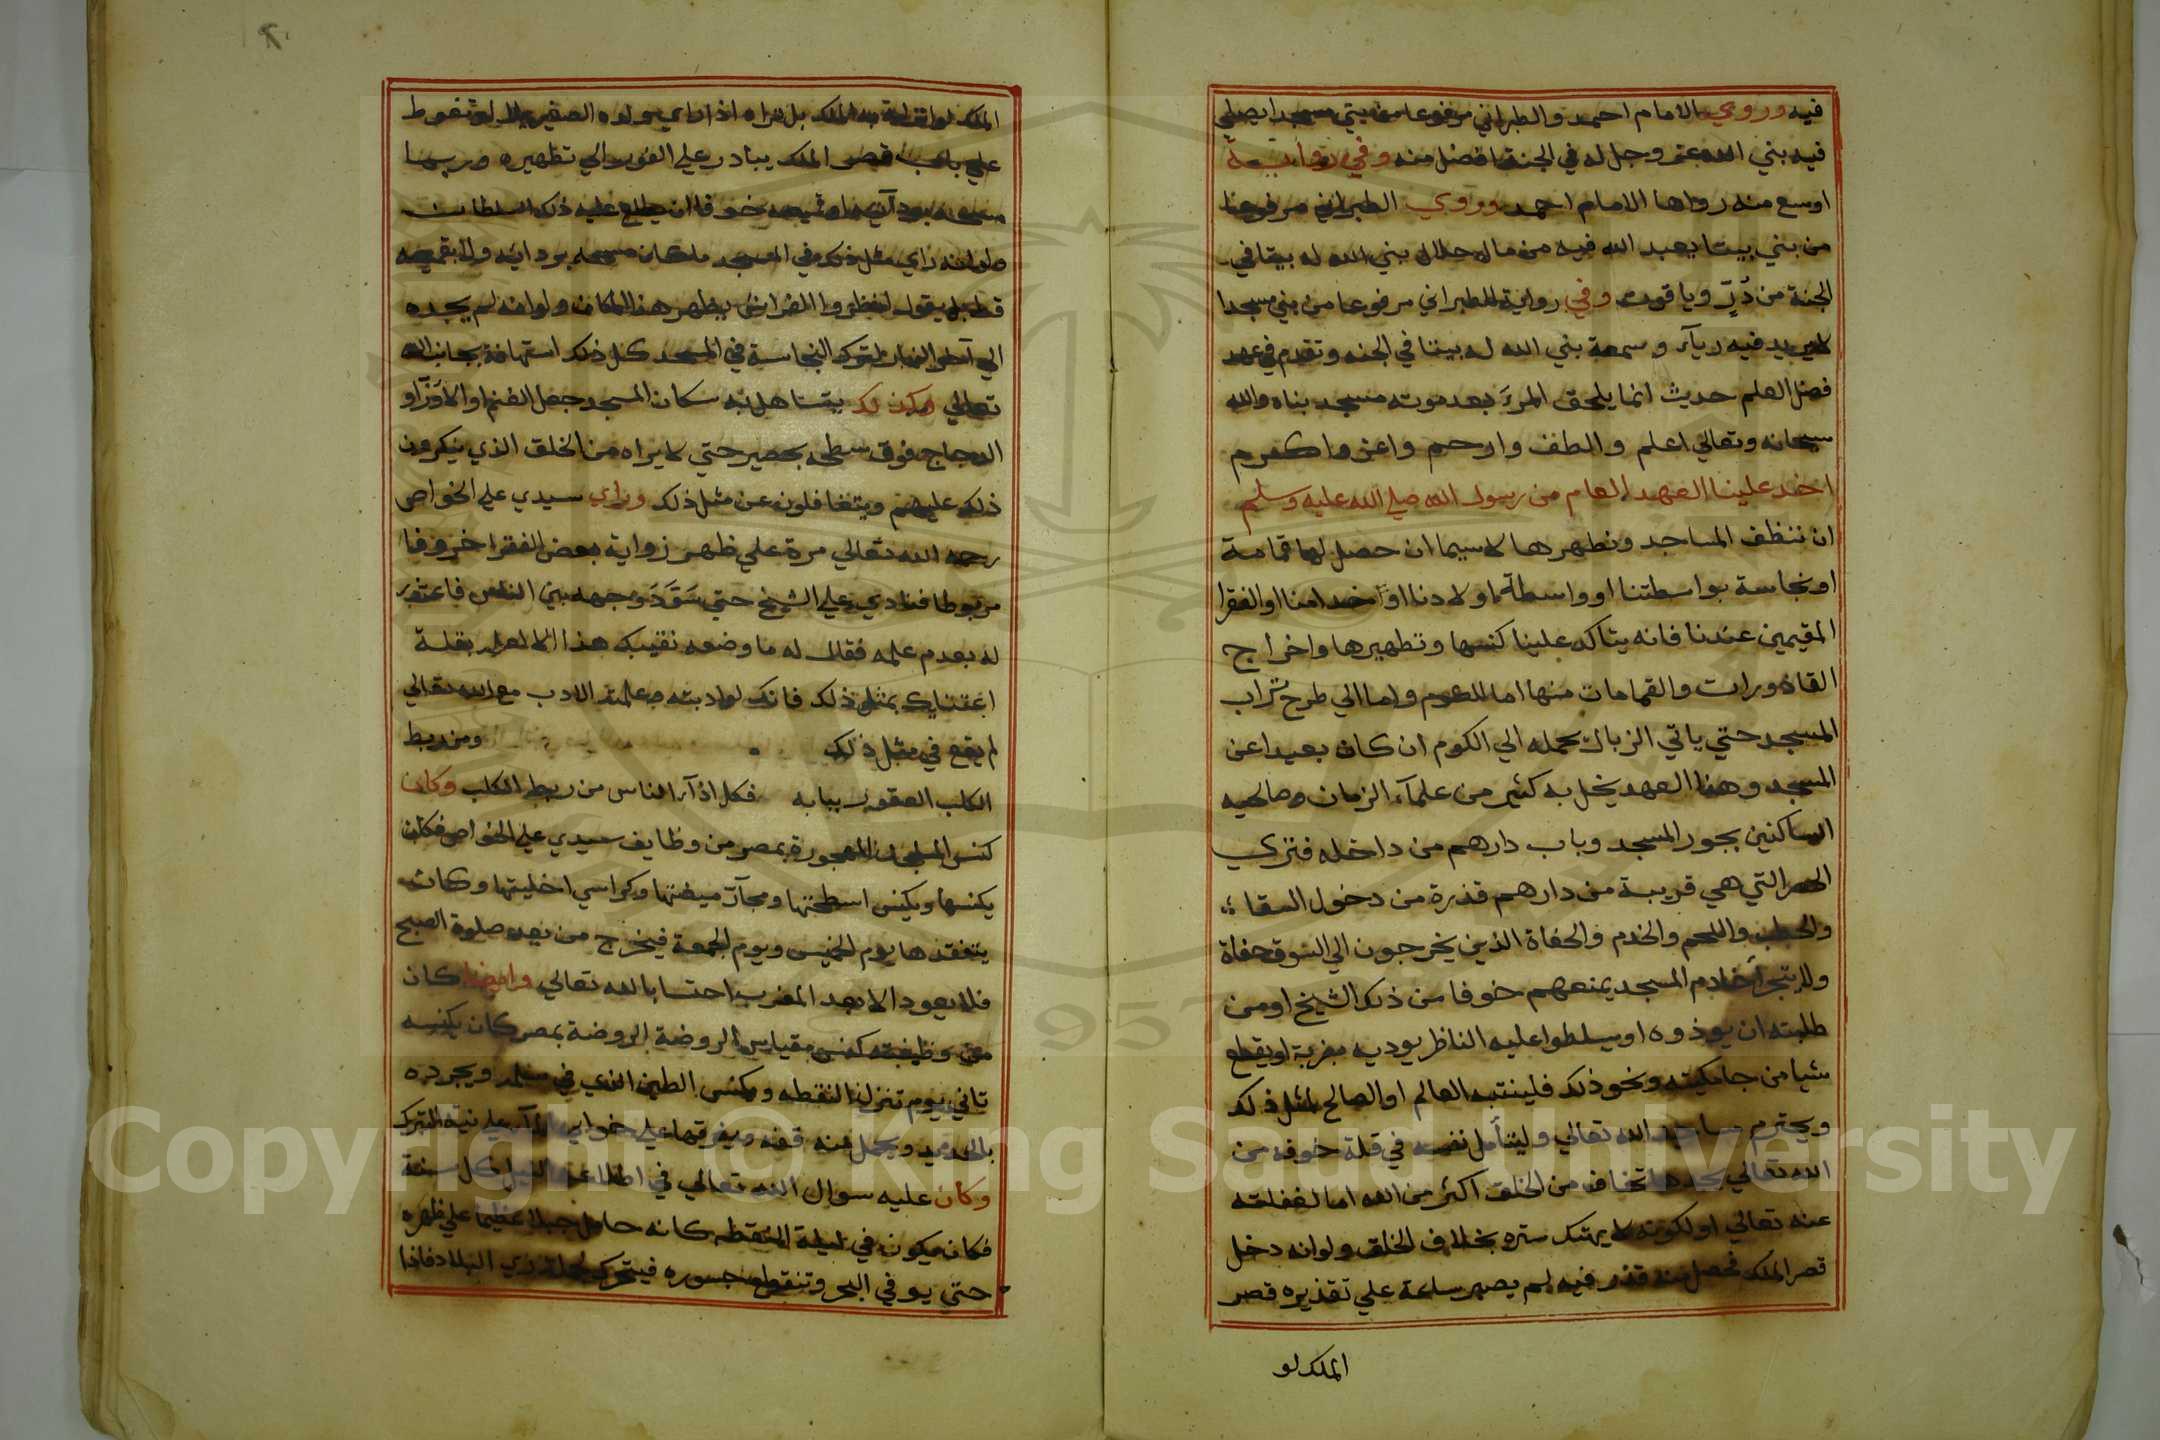 فيه وروي الامام احمد والطبراني مرفوعا من بني مسجدا يصلي
فيه بني الله عز وجل له في الجنة افضل منه وفي رواية
اوسع منه رواها الامام احمد وروي الطبراني مرفوعا
من بني بيتا يعبد الله فيه من مال حلال بني الله له بيتا في
الجنة من دُرّ وياقوت وفي رواية للطبراني مرفوعا من بني مسجدا
لا يريد فيه ريآء وسمعة بني الله له بيتا في الجنه وتقدم في عهد
فضل العلم حديث انما يلحق المرء بعد موته مسجد بناه والله
سبحانه وتعالي اعلم والطف وارحم واعز واكرم
اخذ علينا العهد العام من رسول الله صلي الله عليه وسلم
ان ننظف المساجد ونطهرها لا سيما ان حصل لها قمامة
او نجاسة بواسطتنا او واسطة اولادنا او خدامنا او الفقرا
المقيمين عندنا فانه يتاكد علينا كنسها وتطهيرها واخراج
القاذورات والقمامات منها اما للكوم واما الي طرح تراب
المسجد حتي ياتي الزبال يحمله الي الكوم ان كان بعيدا عن
المسجد وهذا العهد يخل به كثير من علمآء الزمان وصالحيه
الساكنين بجور المسجد وباب دارهم من داخله فتري
الحصر التي هي قريبة من دارهم قذرة من دخول السقا
والحطب واللحم والخدم والحفاة الذين يخرجون الي السوق حفاة
ولا يتجرأ خادم المسجد يمنعهم خوفا من ذلك الشيخ او من
طلبته ان يوذوه او يسلطوا عليه الناظر يوديه بضربة او يقطع
شيا من جامكيته ونحو ذلك فلينتبه العالم او الصالح لمثل ذلك
ويحترم مساجد الله تعالي وليتأمل نفسه في قلة خوفه من
الله تعالي يجدها تخاف من الخلق اكثر من الله اما لغفلته
عنه تعالي او لكونه لا يهتك ستره بخلاف الخلق ولو انه دخل
قصر الملك فحصل منه قذر فيه لم يصبر ساعة علي تقذيره قصر
الملك لو
الملك بل تراه اذا راي ولده الصغير تغوط
علي باب قصر الملك يبادر علي الفور الي تطهيره وربما
مسحه بردآيه او ثيابه خوفا ان يطلع عليه ذلك السلطان
ولو انه راي مثل ذلك في المسجد ما كان مسحه بردايه ولا بقميصه
قط بل يقول انظروا الفراش يطهر هذا المكان ولو انه لم يجده
الي آخر النهار لترك النجاسة في المسجد كل ذلك استهانة بجانب الله
تعالي وكذلك يتساهل به سكان المسجد جعل الغنم او الاوز او
الدجاج فوق سطحه بحصير حتي لا يراه من الخلق الذي ينكرون
ذلك عليهم ويتغافلون عن مثل ذلك وراي سيدي علي الخواص
رحمه الله تعالي مرة علي ظهر زواية بعض الفقرا خروفا
مربوطا فنادي علي الشيخ حتي سَوَّدَ وجهه بين الناس فاعتذر
له بعدم علمه فقال له ما وضعه نقيبك هذا الا لعلمه بقلة
اعتنايك بمثل ذلك فانك لو ادبته وعلمته الادب مع الله تعالي
لم يقع في مثل ذلك ومن ربط
الكلب العقور ببابه فكل اذآء الناس من ربط الكلب وكان
كنس المساجد المهجورة بمصر من وظايف سيدي علي الخواص فكان
يكنسها ويكنس اسطحتها ومجآرّ ميضتها وكراسي اخليتها وكان
يتفقدها يوم الخميس ويوم الجمعة فيخرج من بعد صلوة الصبح
فلا يعود الا بعد المغرب احتسابا لله تعالي وايضا كان
من وظيفته كنس مقياس الروضة الروضة بمصر كان يكنسه
ثاني يوم تنزل النقطه ويكنس الطين الذي في سلمه ويجرده
بالحديد ويحمل منه قفه ويفرقها علي خوابي المآء علي نية التبرك
وكان عليه سوال الله تعالي في اطلاع النيل كل سنة
فكان يكون في ليلة النقطه كانه حامل جبلا عظيما علي ظهره
حتي يوفي البحر وتنقطع جسوره فيتحرك لحمل ري البلاد فاذا
Copyright © King Saud University
1957